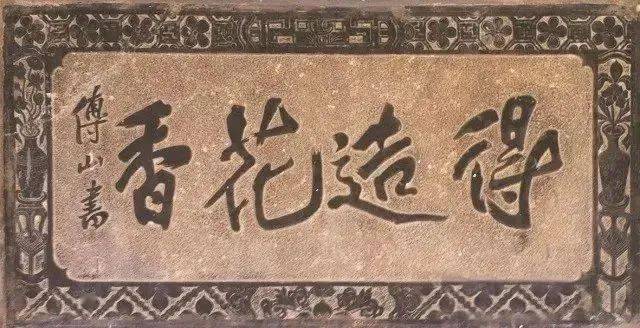 得造花香
傅山書